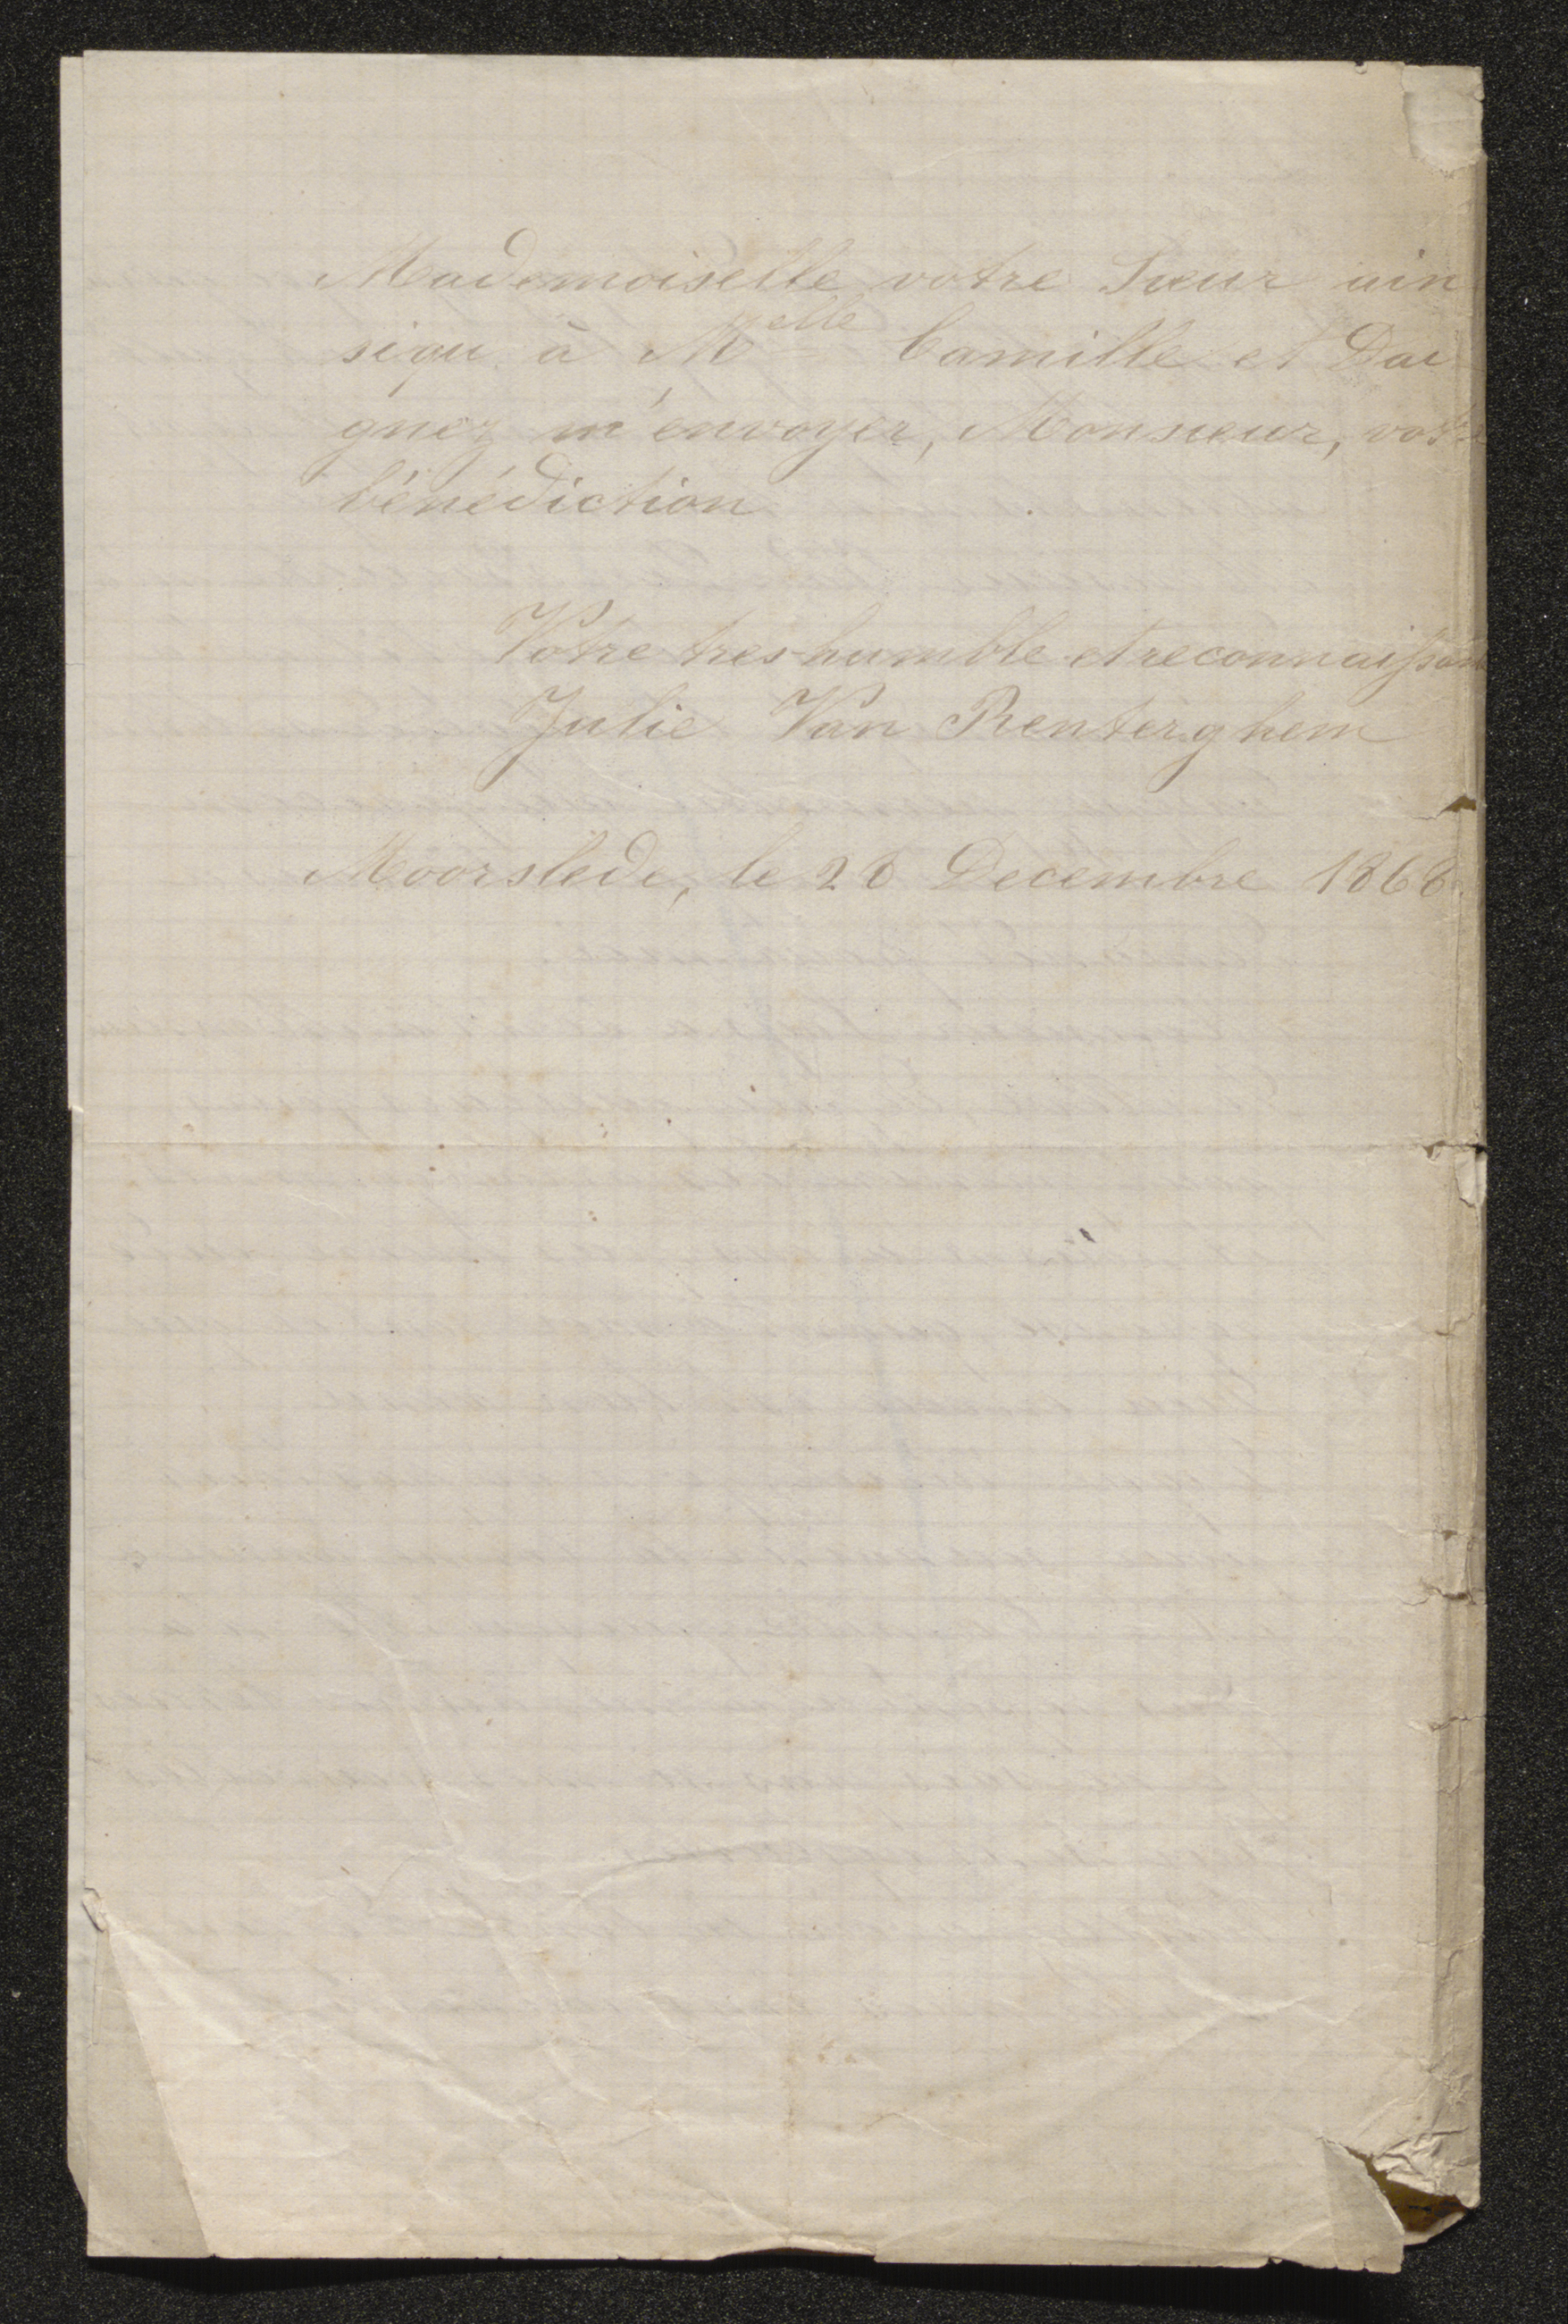 Mademoiselle votre Sœur ain
siqu à Melle Camille et Dai
gnez m'envoyer, Monsieur, votre
bénédiction
Votre tres humble et reconnaissante
Julie Van Renterghem
Moorslede, le 28 Decembre 1868.